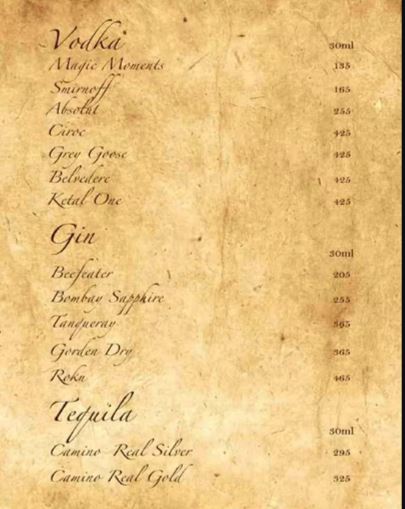 Vodka 30ml
Magic Moments 135
Smirnoff 165
Absolut 255
Ciroc 425
Grey Goose 425
Belvedere 425
Ketal One 425
Gin 30ml
Beefeater 205
Bombay Sapphire 255
Tanqueray 365
Gorden Dry 365
Roku 465
Tequila 30ml
Camino Real Silver 295
Camino Real Gold 325